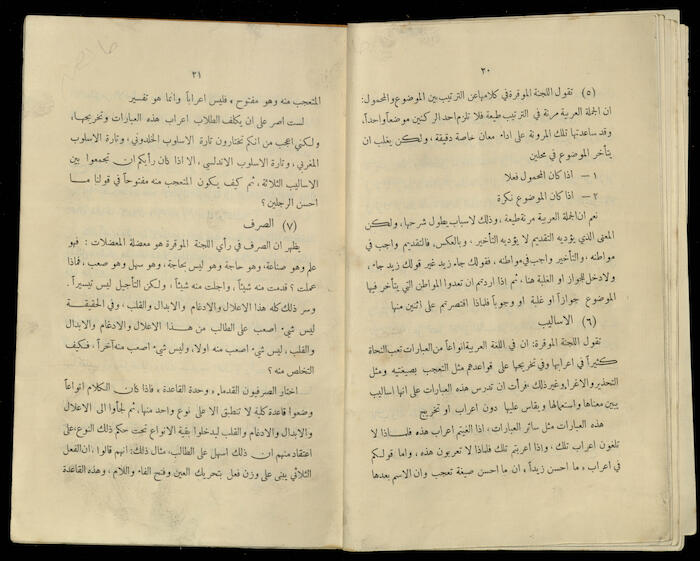 ٢٠
(٥) تقول اللجنة الموقرة في كلامها عن الترتيب بين الموضوع والمحمول:
ان الجملة العربية مرنة في الترتيب طيعة فلا تلزم احد الركنين موضعاً واحداً،
وقد ساعدتها تلك المرونة على اداء معان خاصة دقيقة، ولكن يغلب ان
يتأخر الموضوع في محلين
١ – اذا كان المحمول فعلا
٢ – اذا كان الموضوع نكرة
نعم ان الجملة العربية مرنة طيعة، وذلك لاسباب يطول شرحها، ولكن
المعنى الذي يؤديه التقديم لا يؤديه التأخير، وبالعكس، فالتقديم واجب في
مواطنه، والتأخير واجب في مواطنه، فقولك جاء زيد غير قولك زيد جاء،
ولا دخل للجواز او الغلبة هنا، ثم إذا اردتم ان تعدوا المواطن التي يتأخر فيها
الموضوع جوازاً او غلبة او وجوباً فلماذا اقتصرتم على اثنين منها
(٦) الاساليب
تقول اللجنة الموقرة: ان في اللغة العربية انواعاً من العبارات تعب النحاة
كثيراً في اعرابها وفي تخريجها على قواعدهم مثل التعجب بصيغتيه ومثل
التحذير والاغراء وغير ذلك، فرأت ان تدرس هذه العبارات على انها اساليب
يبين معناها واستعمالها ويقاس عليها دون اعراب او تخريج
هذه العبارات مثل سائر العبارات، اذا الغيتم اعراب هذه فلماذا لا
تلغون اعراب تلك، واذا اعربتم تلك فلماذا لا تعربون هذه، واما قولكم
في اعراب «ما احسن زيداً» ان ما احسن صيغة تعجب وان الاسم بعدها
٢١
المتعجب منه وهو مفتوح» فليس اعراباً وانما هو تفسير
لست اصر على ان يكلف الطلاب اعراب هذه العبارات وتخريجها،
ولكني اعجب من انكم تختارون تارة الاسلوب الخلدوني، وتارة الاسلوب
المغربي، وتارة الاسلوب الاندلسي، الا اذا كان رأيكم ان تجمعوا بين
الاساليب الثلاثة، ثم كيف يكون المتعجب منه مفتوحاً في قولنا ما
احسن الرجلين؟
(٧) الصرف
يظهر ان الصرف في رأي اللجنة الموقرة هو معضلة المعضلات: فهو
علم وهو صناعة، وهو حاجة وهو ليس بحاجة، وهو سهل وهو صعب، فماذا
عملت؟ قدمت منه شيئاً، واجلت منه شيئاً، ولكن التأجيل ليس تيسيراً.
وسر ذلك كله هذا الاعلال والادغام والابدال والقلب، وفي الحقيقة
ليس شيء اصعب على الطالب من هذا الاعلال والادغام والابدال
والقلب، ليس شيء اصعب منه اولا، وليس شيء اصعب منه آخراً، فكيف
التخلص منه؟
اختار الصرفيون القدماء «وحدة القاعدة» فاذا كان الكلام انواعاً
وضعوا قاعدة كلية لا تنطبق الا على نوع واحد منها، ثم لجأوا الى الاعلال
والابدال والادغام والقلب ليدخلوا بقية الانواع تحت حكم ذلك النوع، على
اعتقاد منهم ان ذلك اسهل على الطالب، مثال ذلك: انهم قالوا، ان الفعل
الثلاثي يبنى على وزن فعل بتحريك العين وفتح الفاء واللام، وهذه القاعدة